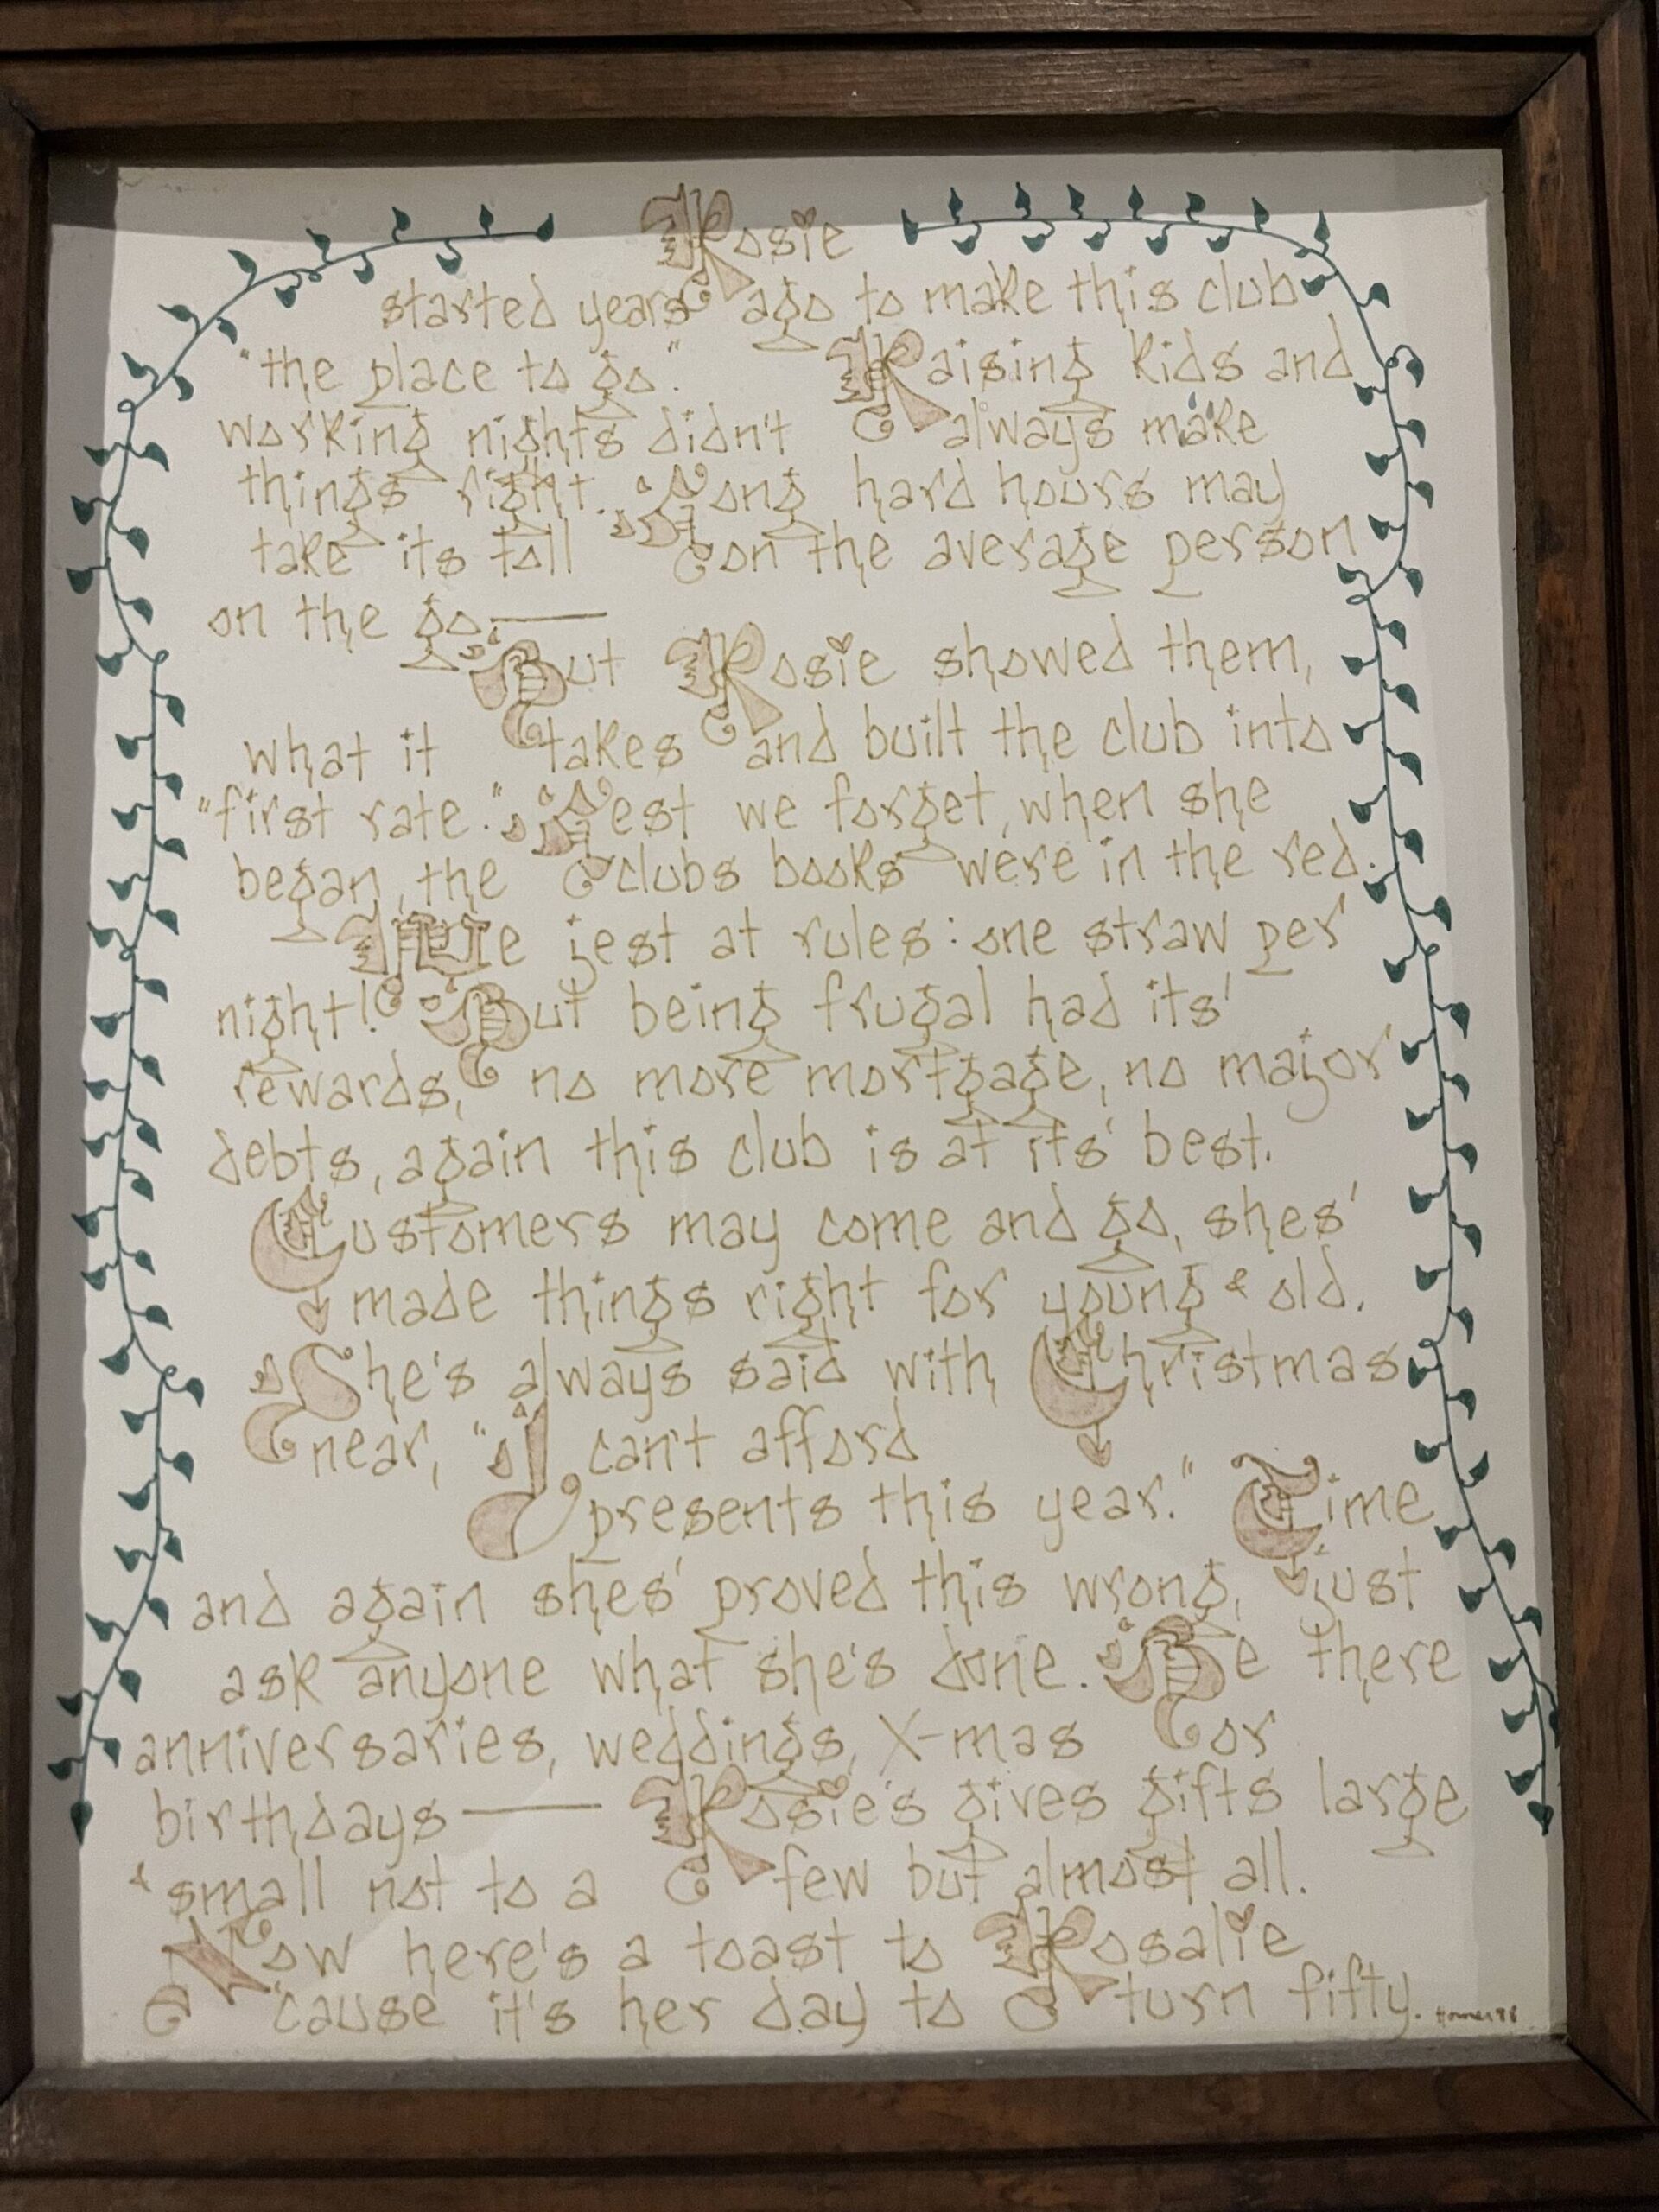 Rosie
started years ago to make this club
"the place to go." Raising kids and
working nights didn't always make
things right. Long hard hours may
take its toll on the average person
on the go —
But Rosie showed them,
what it takes and built the club into
"first rate." Lest we forget, when she
began, the clubs books were in the red.
We jest at rules: one straw per
night! But being frugal had its'
rewards, no more mortgage, no major
debts, again this club is at its' best.
Customers may come and go, shes'
made things right for young & old.
She's always said with Christmas
near, "I can't afford
presents this year." Time
and again shes' proved this wrong, just
ask anyone what she's done. Be there
anniversaries, weddings, X-mas or
birthdays — Rosie's gives gifts large
& small not to a few but almost all.
Now here's a toast to Rosalie
'cause it's her day to turn fifty.